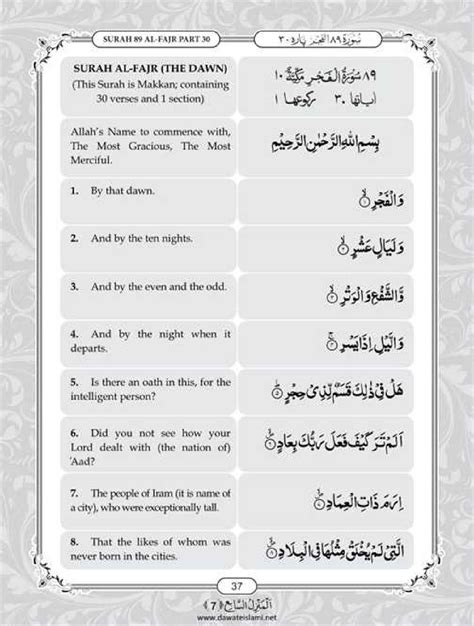 SURAH 89 AL-FAJR PART 30
سُوْرَةُ ٨٩ اَلْفَجْر پارہ ٣٠
SURAH AL-FAJR (THE DAWN)
(This Surah is Makkan; containing
30 verses and 1 section)
٨٩ سُوْرَةُ الْفَجْرِ مَكِّيَّةٌ ١٠
اٰیاتها ٣٠ ركوعها ١
Allah's Name to commence with,
The Most Gracious, The Most
Merciful.
بِسْمِ اللّٰهِ الرَّحْمٰنِ الرَّحِيْمِ
1. By that dawn.
وَالْفَجْرِ ۙ﴿۱﴾
2. And by the ten nights.
وَلَيَالٍ عَشْرٍ ۙ﴿۲﴾
3. And by the even and the odd.
وَّالشَّفْعِ وَالْوَتْرِ ۙ﴿۳﴾
4. And by the night when it
departs.
وَالَّيْلِ اِذَا يَسْرِ ۚ﴿۴﴾
5. Is there an oath in this, for the
intelligent person?
هَلْ فِيْ ذٰلِكَ قَسَمٌ لِّذِيْ حِجْرٍ ؕ﴿۵﴾
6. Did you not see how your
Lord dealt with (the nation of)
'Aad?
اَلَمْ تَرَ كَيْفَ فَعَلَ رَبُّكَ بِعَادٍ ۙ﴿۶﴾
7. The people of Iram (it is name of
a city), who were exceptionally tall.
اِرَمَ ذَاتِ الْعِمَادِ ۙ﴿۷﴾
8. That the likes of whom was
never born in the cities.
الَّتِيْ لَمْ يُخْلَقْ مِثْلُهَا فِي الْبِلَادِ ۙ﴿۸﴾
37
اَلْمَنْزِلُ السَّابِع ﴿7﴾
www.dawateislami.net